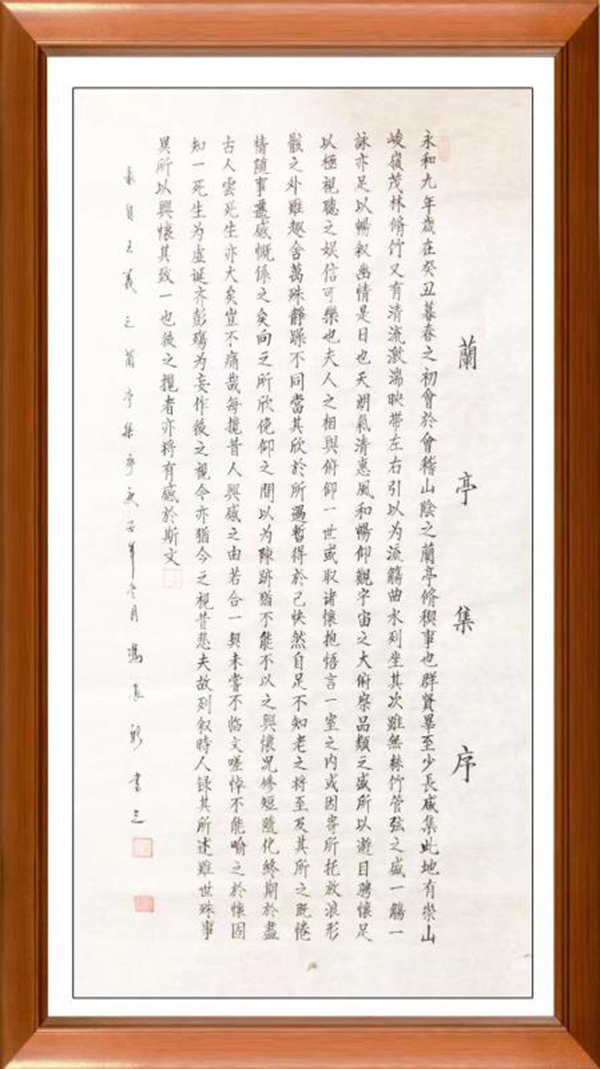 蘭亭集序
永和九年歲在癸丑暮春之初會於會稽山陰之蘭亭脩稧事也群賢畢至少長咸集此地有崇山
峻嶺茂林脩竹又有清流激湍映带左右引以為流觴曲水列坐其次雖無絲竹管弦之盛一觴一
詠亦足以暢叙幽情是日也天朗氣清惠風和暢仰觀宇宙之大俯察品類之盛所以遊目騁懷足
以極視聽之娱信可樂也夫人之相與俯仰一世或取諸懷抱悟言一室之内或因寄所托放浪形
骸之外雖趣舍萬殊靜躁不同當其欣於所遇暫得於己快然自足不知老之将至及其所之既惓
情随事遷感慨係之矣向之所欣俛仰之間以為陳跡猶不能不以之興懷况修短隨化終期於盡
古人雲死生亦大矣豈不痛哉每攬昔人興感之由若合一契未嘗不临文嗟悼不能喻之於懷固
知一死生为虚诞齐彭殤为妄作後之視今亦猶今之視昔悲夫故列叙時人録其所述雖世殊事
異所以興懷其致一也後之攬者亦将有感於斯文
录自王羲之蘭亭集序庚子年冬月馮新書之